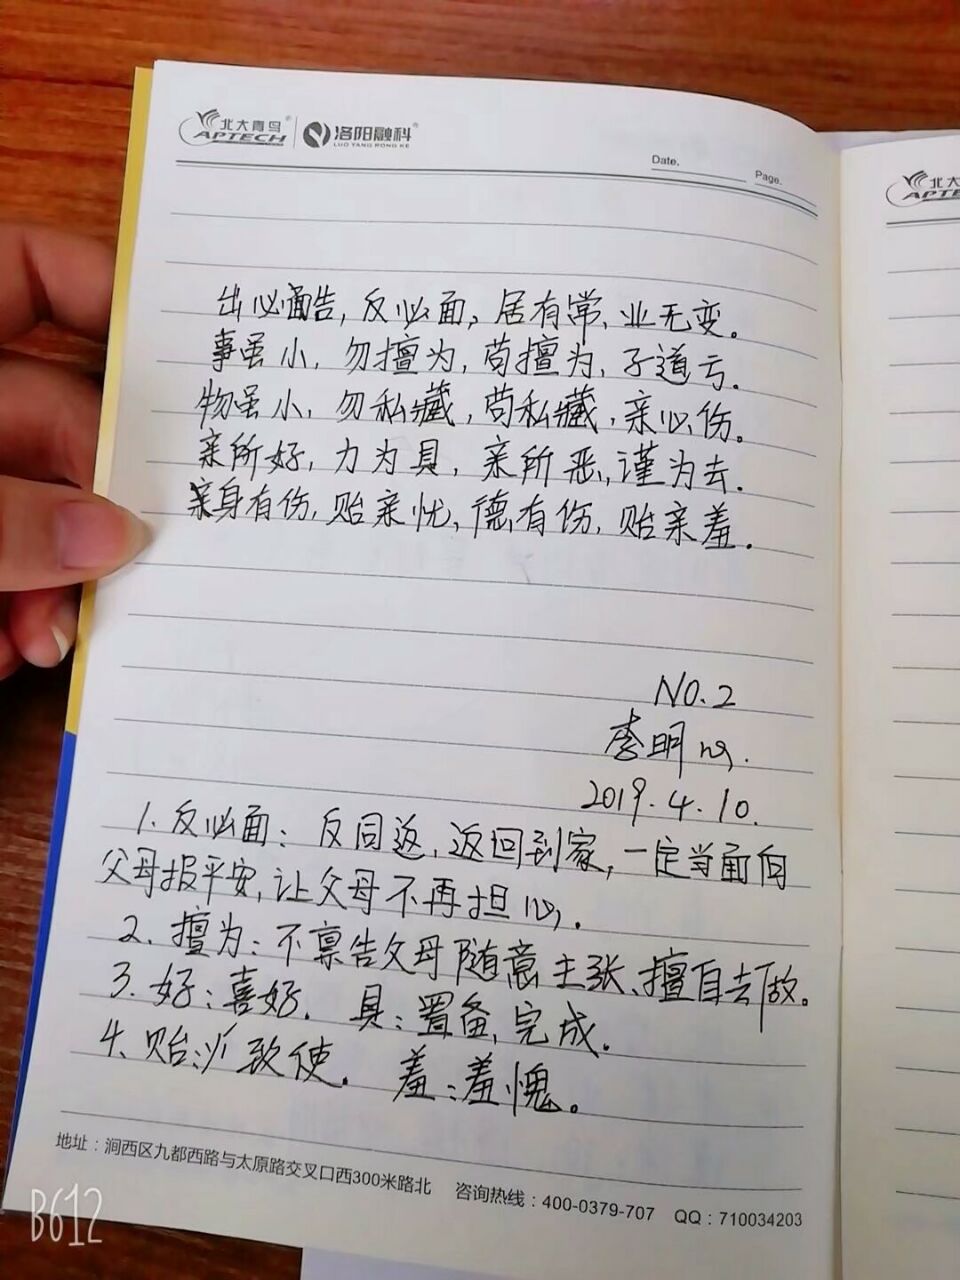 北大青鸟 APTECH 洛阳融科 LUO YANG RONG KE
Date. Page.
出必告, 反必面, 居有常, 业无变。
事虽小, 勿擅为, 苟擅为, 子道亏.
物虽小, 勿私藏, 苟私藏, 亲心伤。
亲所好, 力为具, 亲所恶, 谨为去.
身有伤, 贻亲忧, 德有伤, 贻亲羞.
NO.2
李明
2019.4.10.
1. 反必面: 反同返, 返回到家, 一定当面向
父母报平安, 让父母不再担心.
2. 擅为: 不禀告父母随意主张、擅自去做。
3. 好: 喜好. 具: 置备, 完成.
4、贻: 致使. 羞: 羞愧。
地址:涧西区九都西路与太原路交叉口西300米路北 咨询热线:400-0379-707 QQ:710034203
B612
北大
APTECH